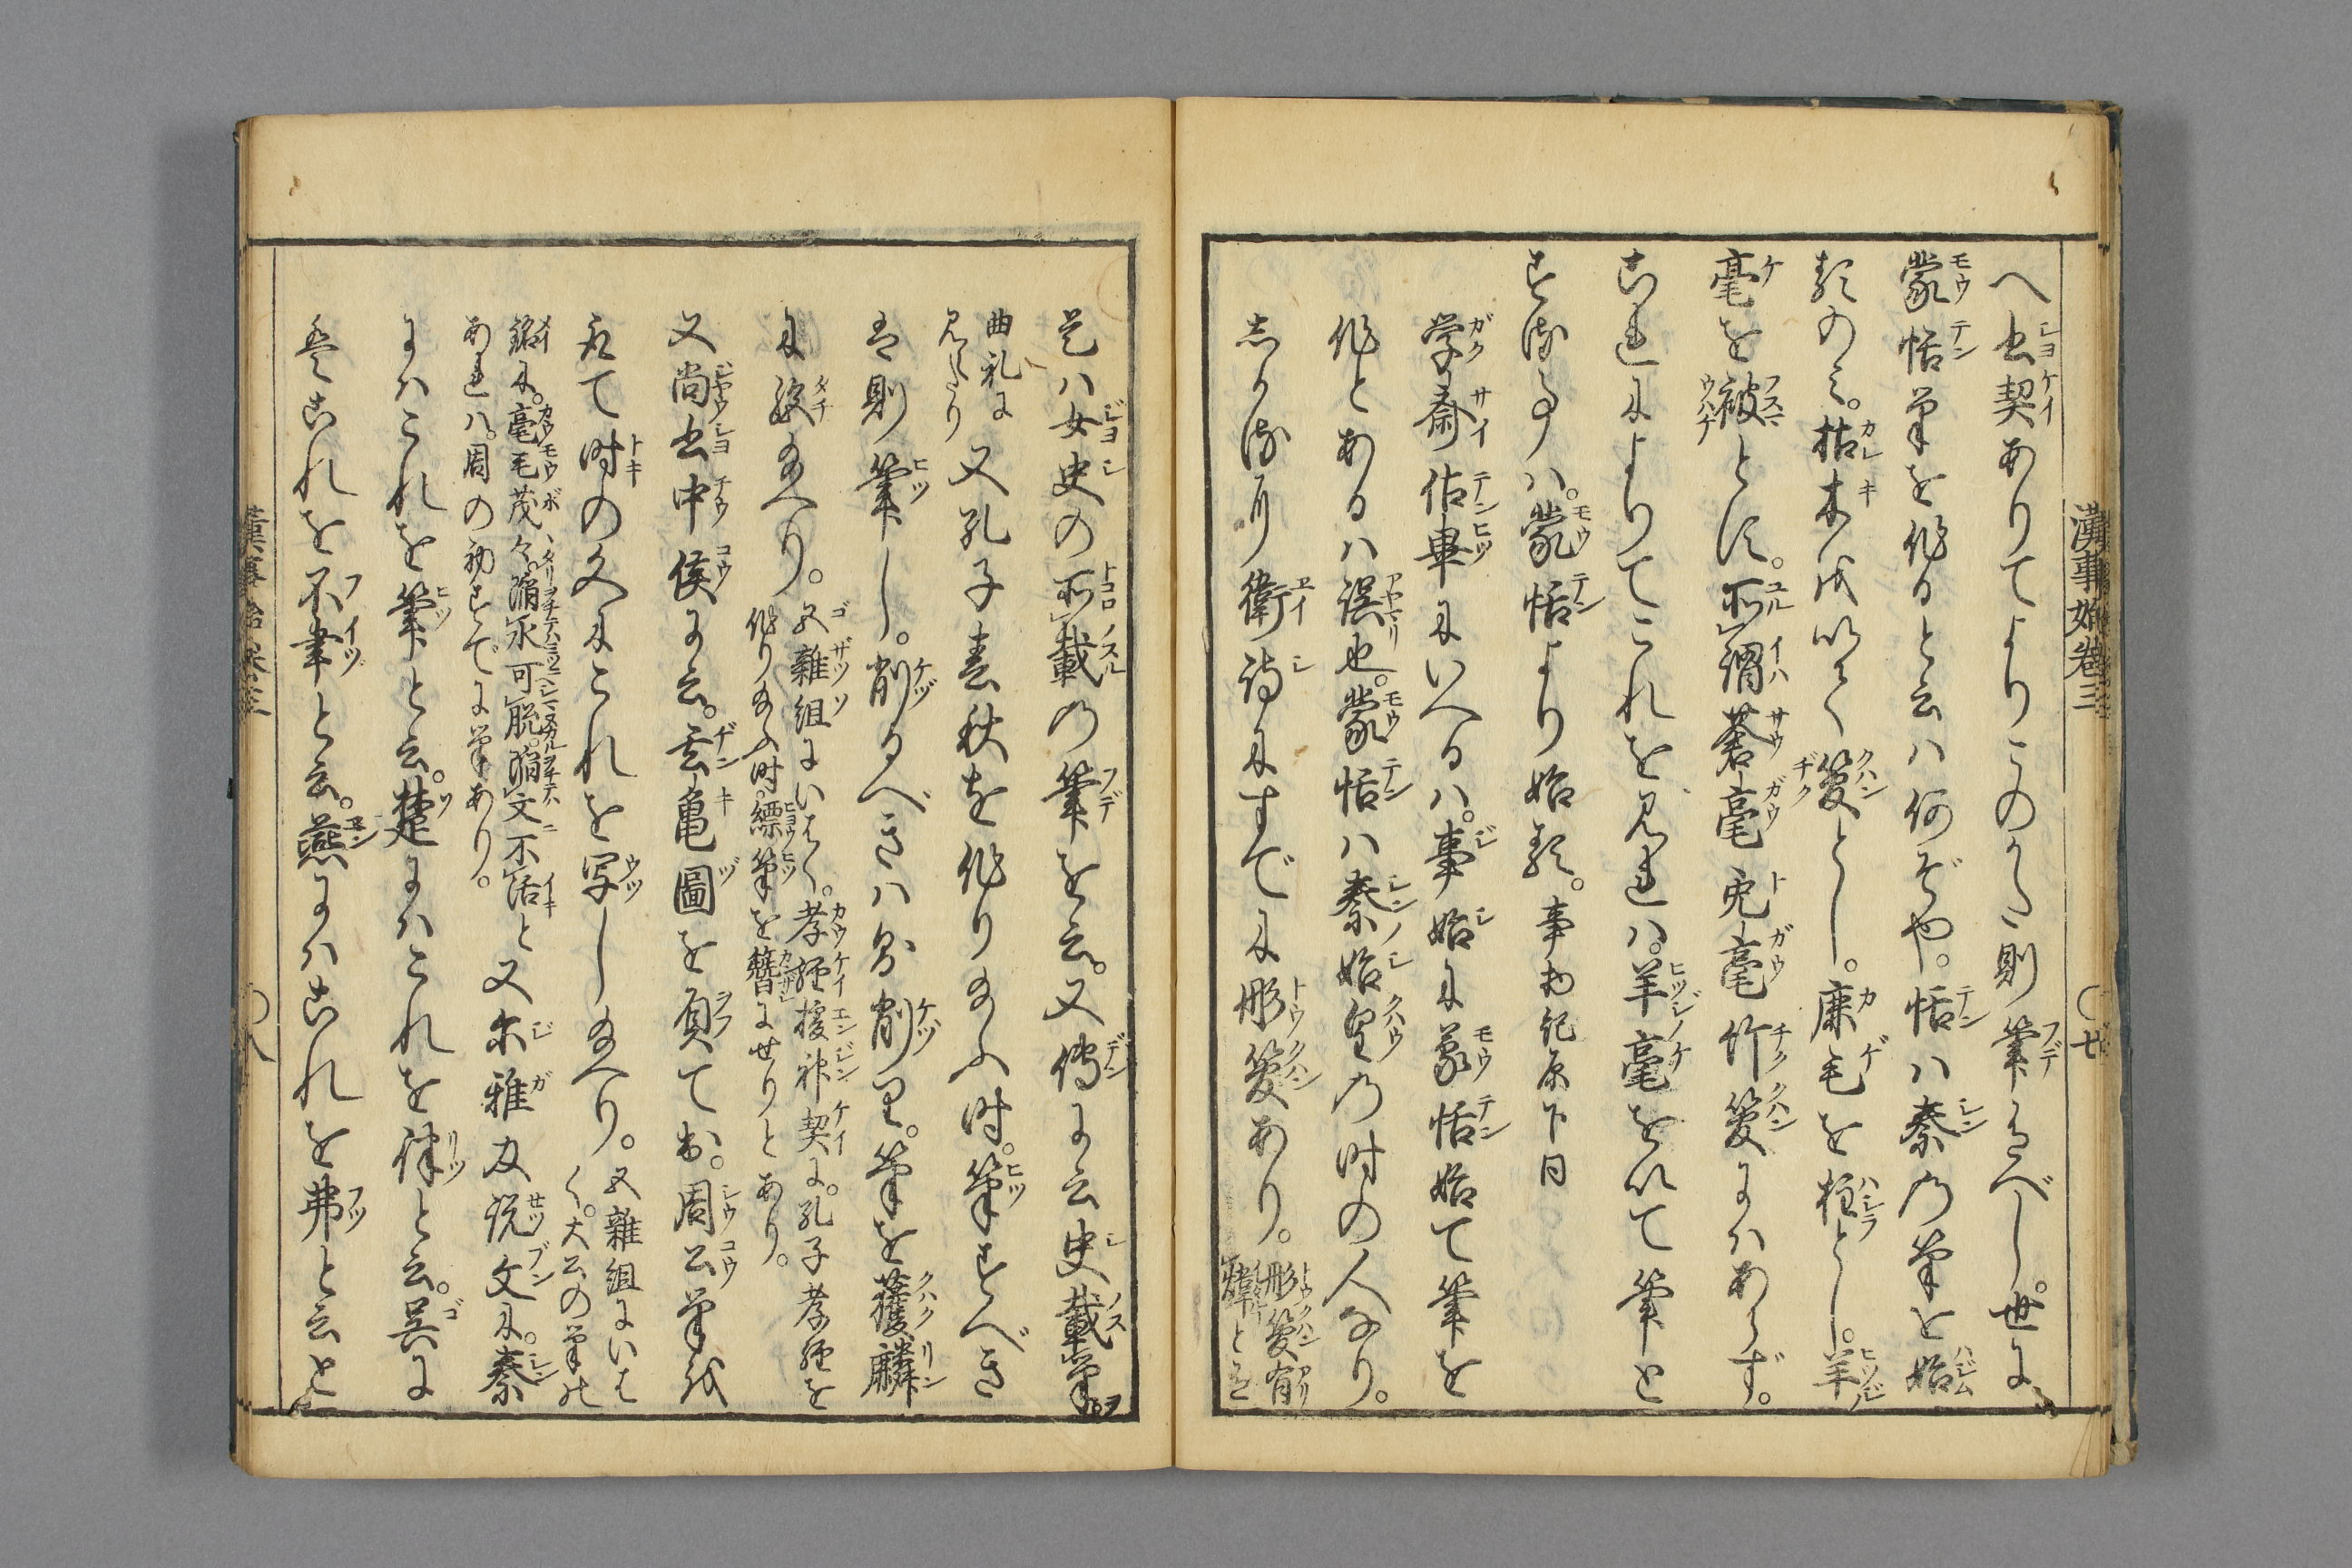 漢事始巻三 〇廿
へ書契ありてよりこのかた則筆有べし。世に
蒙恬筆を作ると云ハ何ぞや。恬ハ秦の筆を始
るのミ。枯木を以て管とし。鹿毛を柱とし。羊
毫を被とす。所謂蒼毫兎毫竹管にハあらず。
これによりてこれを見れハ。羊毫を以て筆と
する事ハ。蒙恬より始る。事物紀原下同
学斎佔畢にいへるハ。事始に蒙恬始て筆を
作とあるハ誤也。蒙恬ハ秦始皇の時の人なり。
しかるに衛詩にすでに彤管あり。彤管有
煒と云
是ハ女史の所載の筆を云。又傳に云史載筆ヲ
曲礼に
見えたり
又孔子春秋を作り給ふ時。筆すべき
は則筆し。削るべきハ則削里。筆を獲麟
に絶給へり。五雜組にいはく。孝經援神契に。孔子孝經を
作り給ふ時。縹筆を簪にせりとあり。
又尚書中侯に云。玄亀圖を負て出。周公筆を
取て時の文にこれを写し給へり。五雜組にいは
く。太公の筆の
銘に。毫毛茂々。溺水可脱。溺文不活と
あれハ。周の初すでに筆あり。
又尓雅及説文に。秦
にハこれを筆と云。楚にハこれを律と云。呉に
ハこれを不聿と云。燕にハこれを弗と云と